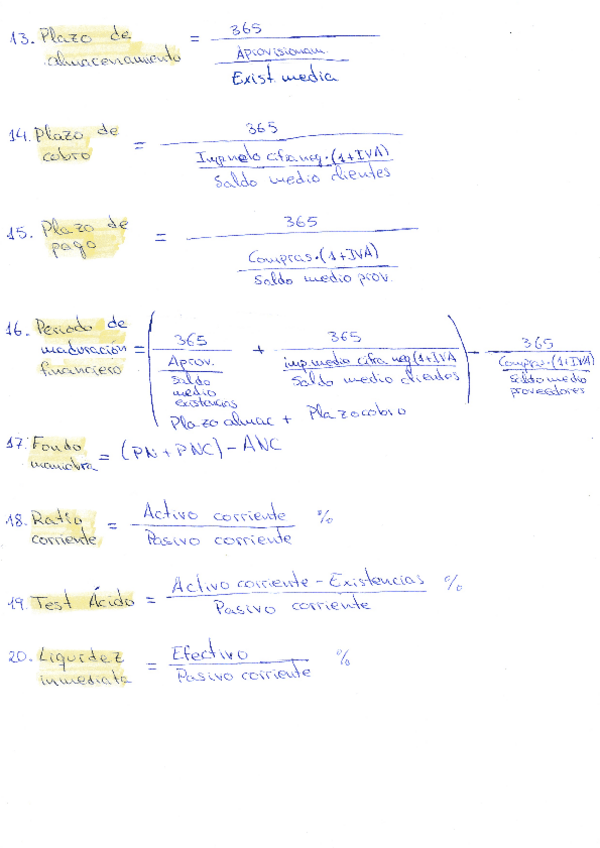 13. Plazo de almacenamiento = 365
Aprovisionam.
Exist. media
14. Plazo de cobro = 365
Imp neto cifra neg. (1+IVA)
Saldo medio clientes
15. Plazo de pago = 365
Compras. (1+IVA)
Saldo medio prov.
16. Periodo de maduración financiero = ( 365 + 365 ) - 365
Aprov. imp medio cifra neg (1+IVA Compras. (1+IVA)
Saldo medio existencias Saldo medio clientes Saldo medio proveedores
Plazo almac + Plazo cobro
17. Fondo maniobra = (PN + PNC) - ANC
18. Ratio corriente = Activo corriente %
Pasivo corriente
19. Test Ácido = Activo corriente - Existencias %
Pasivo corriente
20. Liquidez inmediata = Efectivo %
Pasivo corriente